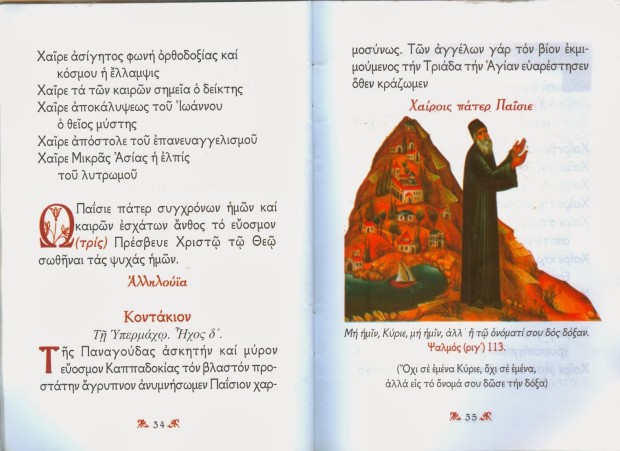 Χαῖρε ἀσίγητος φωνή ὀρθοδοξίας καί
κόσμου ἡ ἔλλαμψις
Χαῖρε τά τῶν καιρῶν σημεῖα ὁ δείκτης
Χαῖρε ἀποκάλυψεως τοῦ Ἰωάννου
ὁ θεῖος μύστης
Χαῖρε ἀπόστολε τοῦ ἐπανευαγγελισμοῦ
Χαῖρε Μικρᾶς Ἀσίας ἡ ἐλπίς
τοῦ λυτρωμοῦ
Ὦ Παΐσιε πάτερ συγχρόνων ἡμῶν καί
καιρῶν ἐσχάτων ἄνθος τό εὔοσμον
(τρίς) Πρέσβευε Χριστῷ τῷ Θεῷ
σωθῆναι τάς ψυχάς ἡμῶν.
Ἀλληλούϊα
Κοντάκιον
Τῇ Ὑπερμάχῳ. Ἦχος δ΄.
Τῆς Παναγούδας ἀσκητήν καί μύρον
εὔοσμον Καππαδοκίας τόν βλαστόν προ-
στάτην ἄγρυπνον ἀνυμνήσωμεν Παΐσιον χαρ-
34
μοσύνως. Τῶν ἀγγέλων γάρ τόν βίον ἐκμι-
μούμενος τήν Τριάδα τήν Ἁγίαν εὐαρέστησεν
ὅθεν κράζωμεν
Χαίροις πάτερ Παΐσιε
Μή ἡμῖν, Κύριε, μή ἡμῖν, ἀλλ᾽ ἤ τῷ ὀνόματί σου δός δόξαν.
Ψαλμός (ριγ᾽) 113.
(Ὄχι σέ ἐμένα Κύριε, ὄχι σέ ἐμένα,
ἀλλά εἰς τό ὄνομά σου δῶσε τήν δόξα)
35